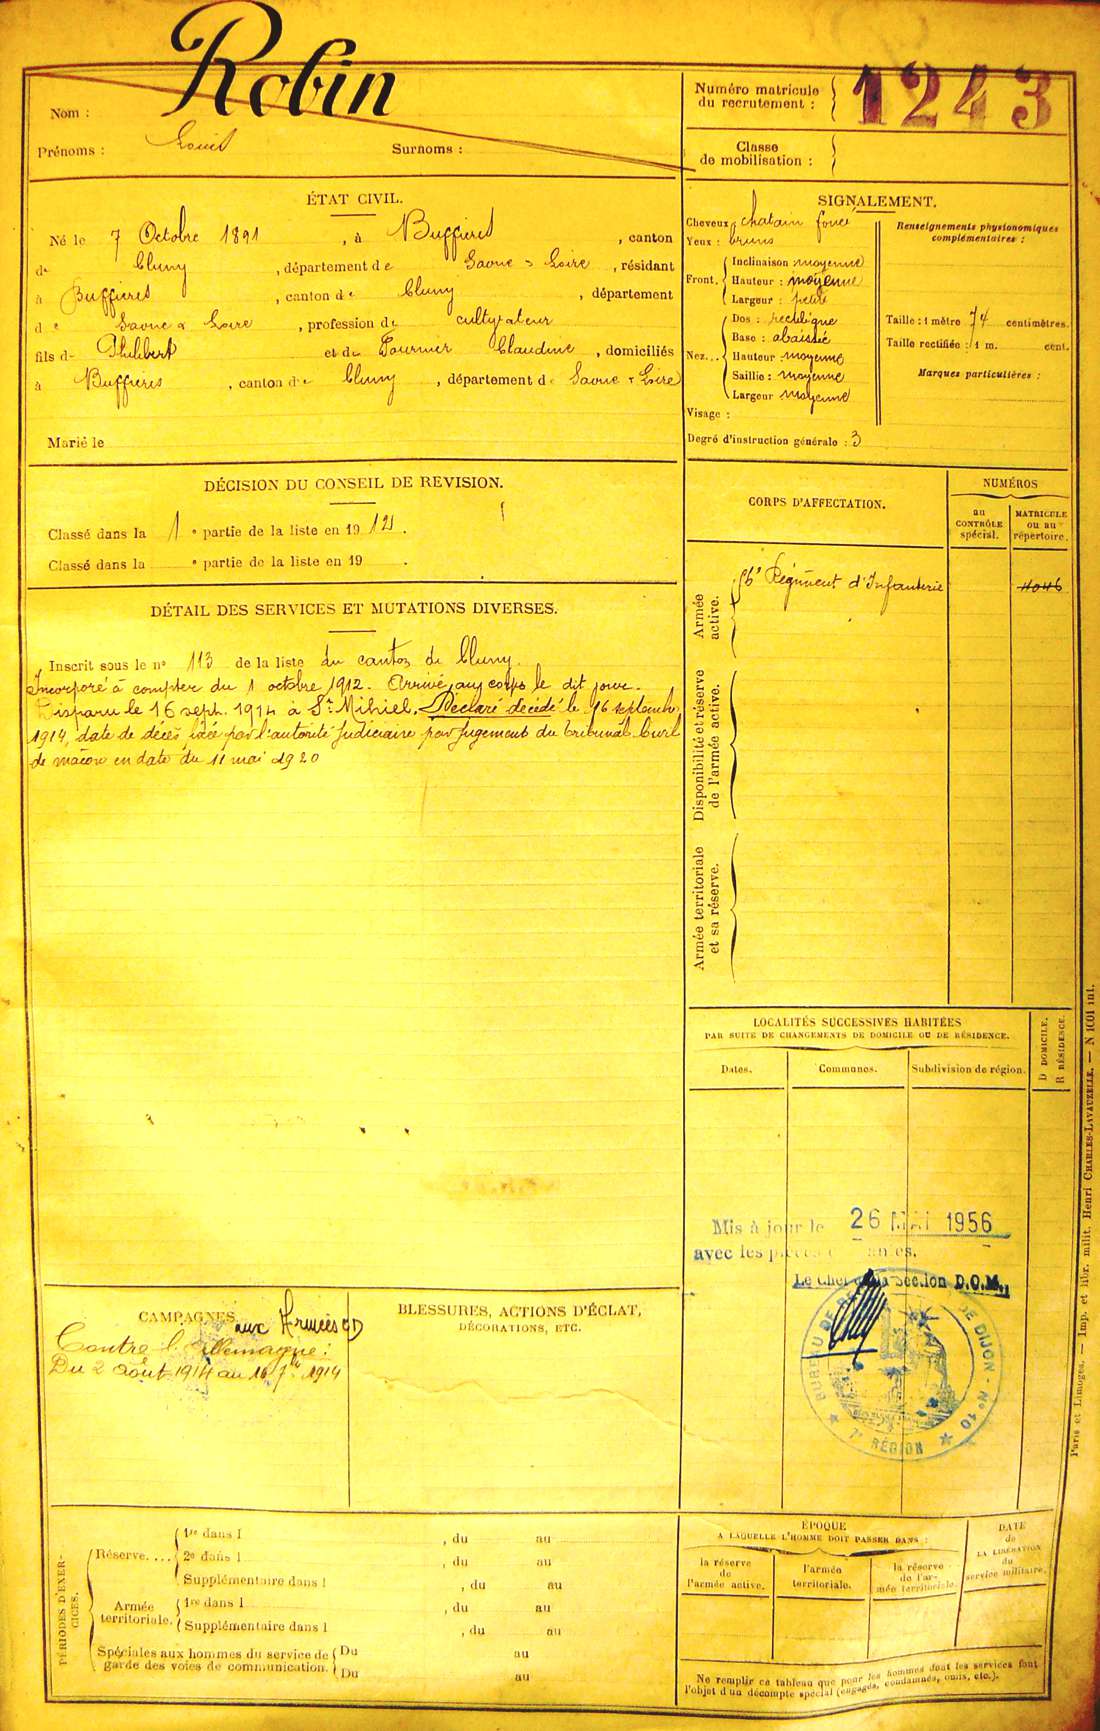 Nom : Robin
Prénoms : Louis Surnoms :
Numéro matricule
du recrutement : 1243
Classe
de mobilisation :
ÉTAT CIVIL.
Né le 7 Octobre 1891, à Buffières, canton
de Cluny, département de Saone & Loire, résidant
à Buffières, canton de Cluny, département
de Saone & Loire, profession de cultivateur
fils de Philibert et de Fournier Claudine, domiciliés
à Buffières, canton de Cluny, département de Saone & Loire
Marié le
SIGNALEMENT.
Cheveux chatain foncé
Yeux : bruns
Front. Inclinaison moyenne
Hauteur : moyenne
Largeur : petite
Nez... Dos : rectiligne
Base : abaissée
Hauteur : moyenne
Saillie : moyenne
Largeur moyenne
Visage :
Degré d'instruction générale : 3
Renseignements physionomiques
complémentaires :
Taille : 1 mètre 74 centimètres.
Taille rectifiée : 1 m. cent.
Marques particulières :
DÉCISION DU CONSEIL DE REVISION.
Classé dans la 1 e partie de la liste en 1912.
Classé dans la e partie de la liste en 19 .
DÉTAIL DES SERVICES ET MUTATIONS DIVERSES.
Inscrit sous le no 113 de la liste du canton de Cluny.
Incorporé à compter du 1 octobre 1912. Arrivé au corps le dit jour.
Disparu le 16 sept. 1914 à St Mihiel. Déclaré décédé le 16 septembre
1914, date de décès fixée par l'autorité judiciaire par jugement du tribunal Civil
de macon en date du 11 mai 1920
CORPS D'AFFECTATION.
NUMÉROS
au
CONTRÔLE
spécial.
MATRICULE
ou au
répertoire.
Armée
active.
56e Régiment d'Infanterie
Disponibilité et réserve
de l'armée active.
Armée territoriale
et sa réserve.
LOCALITÉS SUCCESSIVES HABITÉES
PAR SUITE DE CHANGEMENTS DE DOMICILE OU DE RÉSIDENCE.
D DOMICILE.
R RÉSIDENCE.
Dates. Communes. Subdivision de région.
Mis à jour le 26 MAI 1956
avec les pièces
Le Chef de la Section D.O.M.
BUREAU DE DE DIJON - No 10
7e RÉGION
CAMPAGNES.
aux Armées CD
Contre l'Allemagne :
Du 2 août 1914 au 16 7bre 1914
BLESSURES, ACTIONS D'ÉCLAT,
DÉCORATIONS, ETC.
PÉRIODES D'EXER-
CICES.
Réserve.... 1re dans l , du au
2e dans l , du au
Supplémentaire dans l , du au
Armée
territoriale. 1re dans l , du au
Supplémentaire dans l , du au
Spéciales aux hommes du service de
garde des voies de communication. Du au
Du au
ÉPOQUE
A LAQUELLE L'HOMME DOIT PASSER DANS :
la réserve
de
l'armée active.
l'armée
territoriale.
la réserve
de l'ar-
mée territoriale.
DATE
de
LA LIBÉRATION
du
service militaire.
Ne remplir ce tableau que pour les hommes dont les services font
l'objet d'un décompte spécial (engagés, condamnés, omis, etc.).
Paris et Limoges. — Imp. et libr. milit. Henri CHARLES-LAVAUZELLE. — N 1001 int.